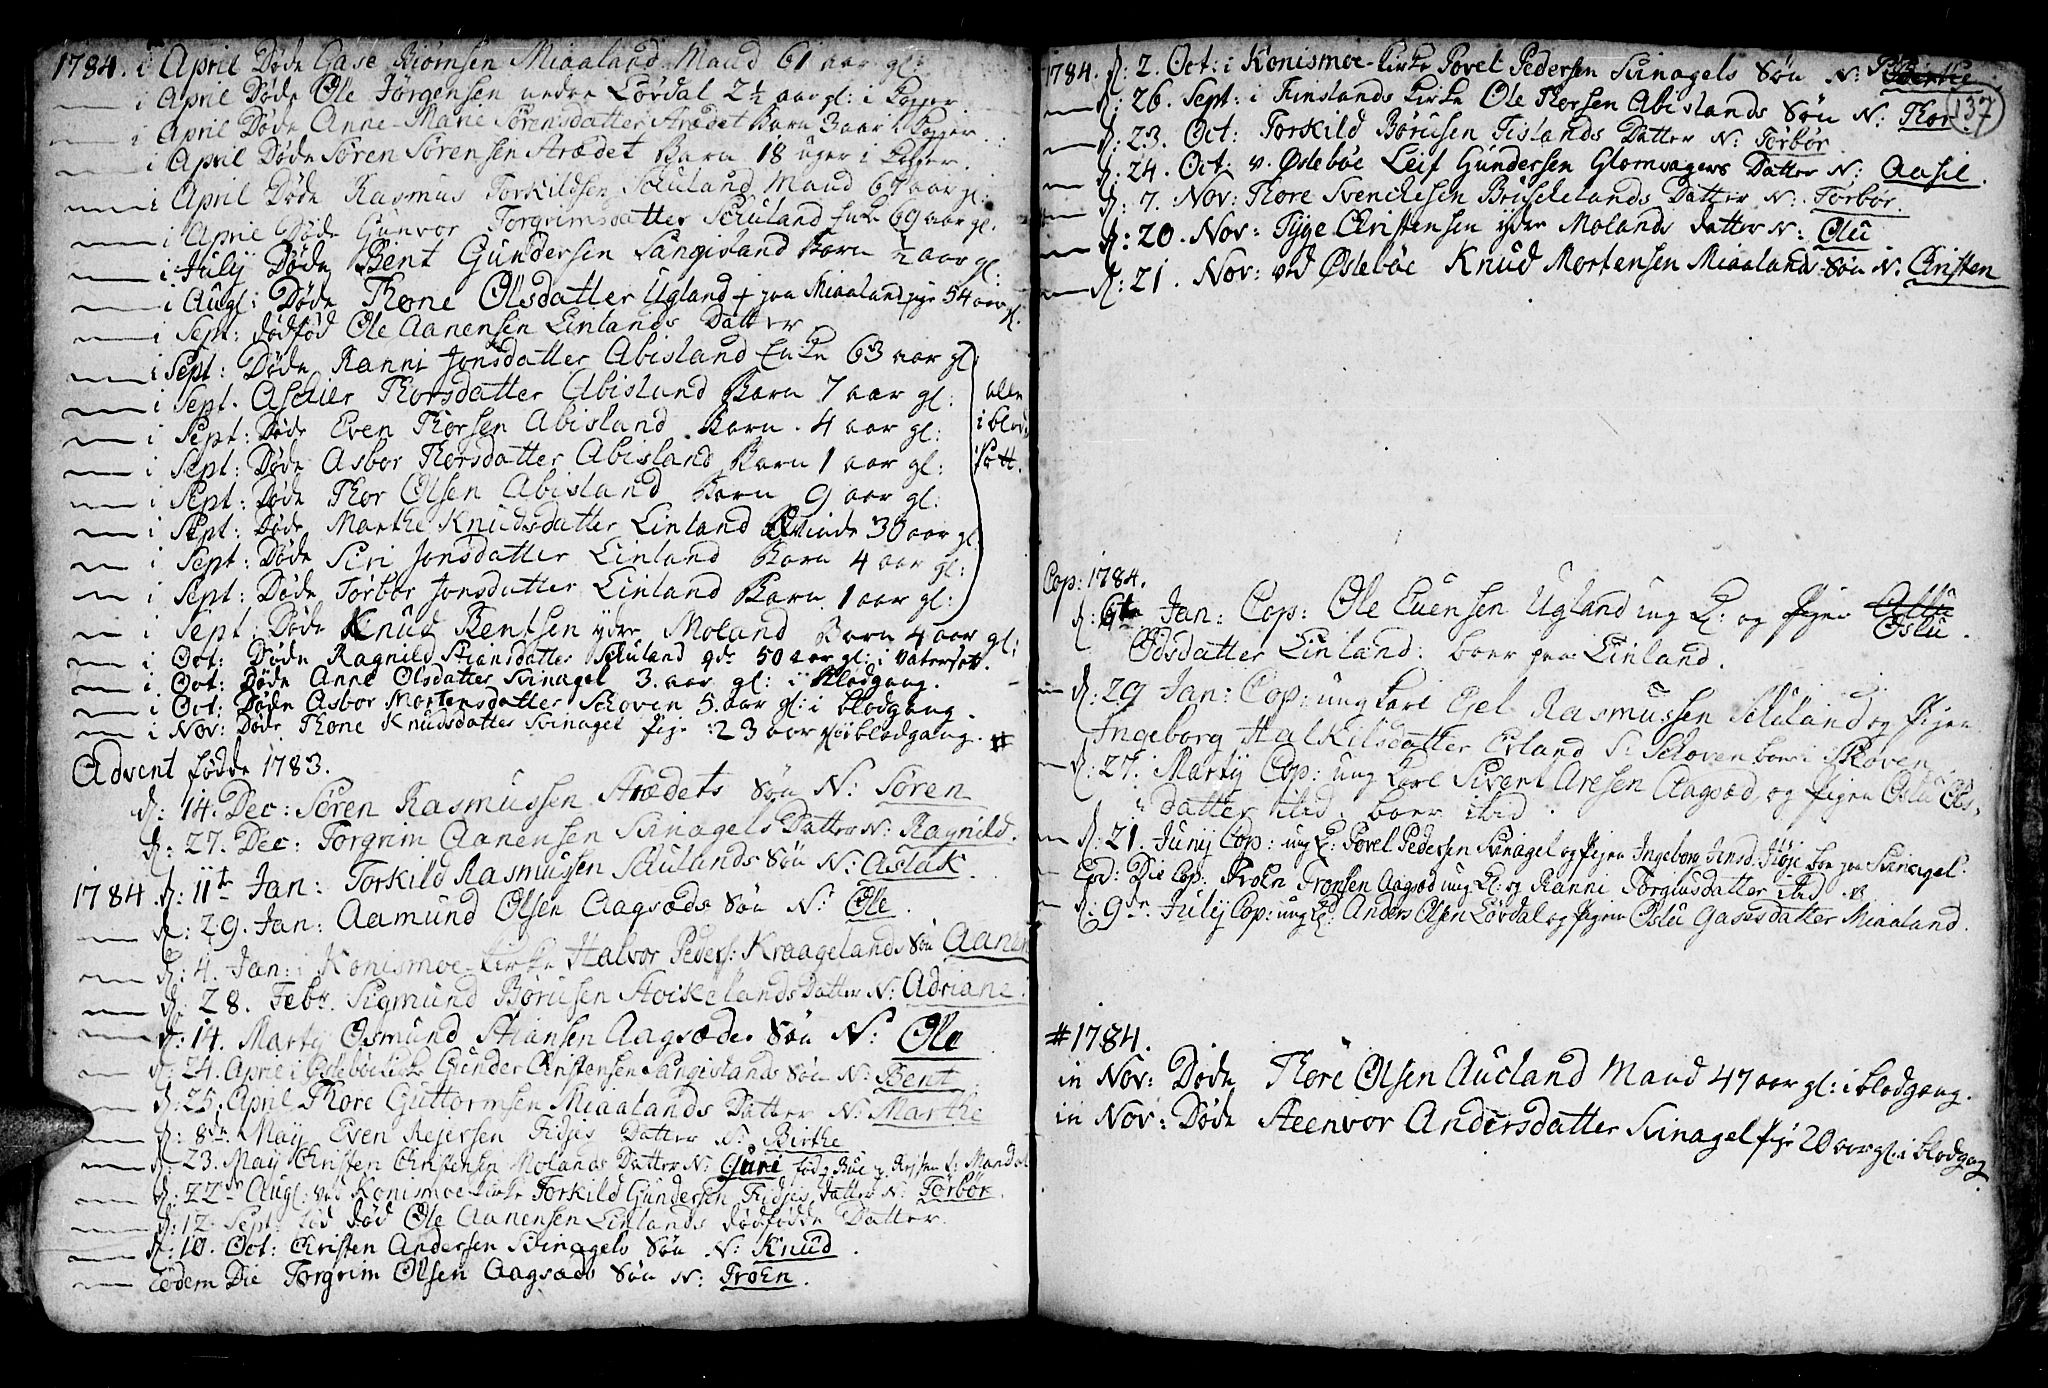 1784. i April Døde Gase Biørnsen Miaaland Mand 61 aar gl:
i April Døde Ole Jörgensen nedre Lövdal 2½ aar gl: i Kopper
i April Døde Anne-Marie Sörensdatter Strædet Barn 3 aar i Kopper
i April Døde Sören Sörensen Strædet Barn 18 uger i Kopper.
i April Døde Rasmus Torkildsen Schuland Mand 67 aar gl:
i April Døde Gunvor Torgrimsdatter Schuland Enke 69 aar gl.
i July Døde Bent Gundersen Sangesland Barn ½ aar gl:
i Augl: Døde Thone Olsdatter Ugland + paa Miaaland pige 54 aar gl.
i Sept: dødfød Ole Aanensen Einlands Datter
i Sept: Døde Ranni Jonsdatter Abisland Enke 63 aar gl:
i Sept. Aschier Thorsdatter Abisland Barn 7 aar gl: alle
i Sept: Døde Even Thorsen Abisland Barn. 4 aar gl: i blod
i Sept: Døde Asbor Thorsdatter Abisland Barn 1 aar gl: sott.
i Sept: Døde Thor Olsen Abisland Barn 9 aar gl:
i Sept: Døde Marthe Knudsdatter Einland Qvinde 30 aar gl:
i Sept: Døde Siri Jonsdatter Einland Barn 4 aar gl:
i Sept: Døde Torbor Jonsdatter Einland Barn 1 aar gl:
i Sept: Døde Knud Bentsen ydre Moland Barn 4 aar gl:
i Oct: Døde Ragnild Stiansdatter Schuland 50 aar gl: i Vatersot.
i Oct: Døde Anne Olsdatter Svinagel 3. aar gl: i Blodgang.
i Oct: Døde Asbor Mortensdatter Schoven 5. aar gl: i blodgang
i Nov: Døde Thone Knudsdatter Svinagel Pige: 23 aar gl: i blodgang. #
Advent fødde 1783.
d: 14. Dec: Sören Rasmussen Strædets Søn N: Sören
d: 27. Dec: Torgrim Aanensen Svinagels Datter N: Ragnild.
1784 d: 11te Jan: Torkild Rasmussen Schulands Søn N: Aslak
d: 29. Jan: Aamund Olsen Aagsæds Søn N: Ole
d: 4. Jan: i Konismoe-Kirke Halvor Peders: Kraagelands Søn Aanen
d: 28. Febr. Sigmund Börusen Stockelands Datter N: Adriane.
d: 14. Marty Osmund Stiansen Aagsæds Søn N: Ole
d: 24. April i Øslebøe Kirke Gunder Christensen Sangislands Søn N: Bent
d: 25. April Thore Guttormsen Miaalands Datter N: Marthe
d: 8de May Even Rejersen Fidjes Datter N: Birthe
d: 23. May Christen Christensen Molands Datter N: Guri
d: 22de Augl: ved Konismoe-Kirke Torkild Gundersen Fidjes Datter N: Torbor
d: 12. Sept: Ole Aanensen Einlands dødfødde Datter.
d: 10. Oct: Christen Andersen Svinagels Søn N: Knud
Eodem Die Torgrim Olsen Aagsæds Søn N: Troen.
1784. d: 2. Oct: i Konismoe-Kirke Povel Pedersen Svinagels Søn N: Birthe
137
d: 26. Sept: i Finslands Kirke Ole Thorsen Abislands Søn N: Thor
d: 23. Oct: Torkild Börusen Tislands Datter N: Torbor
d: 24. Oct: v. Øslebøe Leif Gundersen Glomsagers Datter N: Aasil.
d: 7. Nov: Thore Svenchesen Bruskelands Datter N: Torbor.
d: 20. Nov: Tyge Christensen ydre Molands datter N: Oslu
d: 21. Nov: ved Øslebøe Knud Mortensen Miaalands Søn N: Christen
Cop: 1784.
d: 6te Jan: Cop: Ole Evensen Ugland ung K: og Pigen Oslu
Odsdatter Einland: boer paa Einland.
d: 29 Jan: Cop: ung Karl Gjel Rasmussen Schuland og Pigen
Ingeborg Halkilsdatter Erland S: Schoven boer i Skoven
d: 27. Marty Cop: ung Karl Sivert Aresen Aagsæd og Pigen Oslu Ols-
datter ibid, boer ibid.
d: 21. Juny Cop: ung K: Povel Pedersen Svinagel og Pigen Ingeborg Jensd: Høje boe paa Svinagel:
Eod: Die Cop: Troen Tronsen Aagsæd ung K: og Ranni Torgiusdatter ibid
d: 9de July Cop: ung K: Anders Olsen Lövdal og Pigen Oslu Gasesdatter Miaaland.
# 1784.
in Nov: Døde Thore Olsen Aucland Mand 47 aar gl: i blodgang.
in Nov: Døde Steenvor Andersdatter Svinagel Pige 20 aar gl: i blodgang